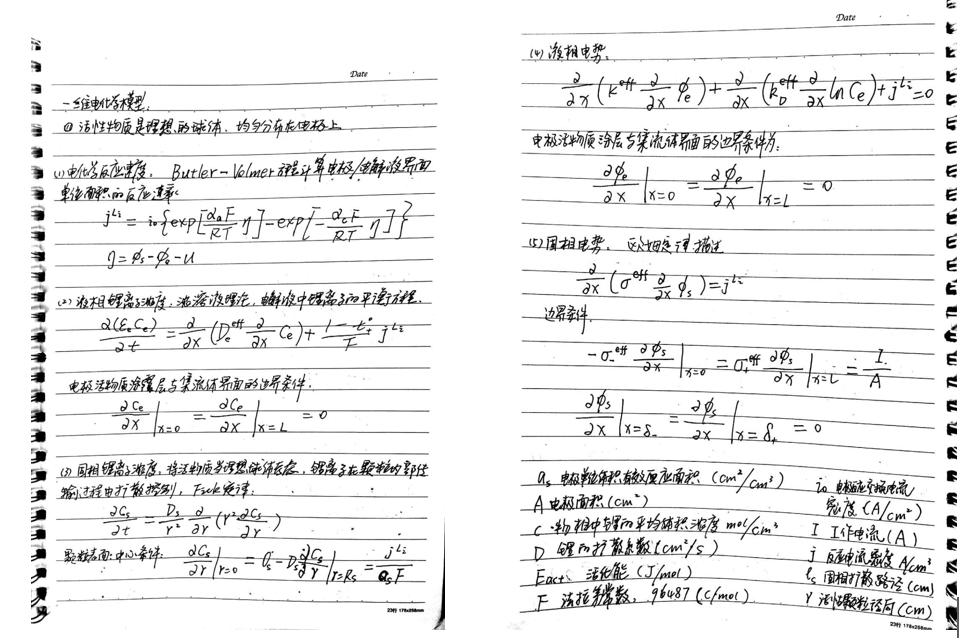 Date
一维电化学模型.
① 活性物质是理想的球体. 均匀分布在电极上
(1) 电化学反应速度. Butler-Volmer方程计算电极/电解液界面
单位面积的反应速率
j^Li = i₀{exp[αₐF/RT η] - exp[-α꜀F/RT η]}
η = φs - φe - u
(2) 液相锂离子浓度. 浓溶液理论, 电解液中锂离子的平衡方程.
∂(εe Ce)/∂t = ∂/∂x (De^eff ∂/∂x Ce) + (1 - t₊°)/F j^Li
电极活物质涂覆层与集流体界面的边界条件.
∂Ce/∂x |x=0 = ∂Ce/∂x |x=L = 0
(3) 固相锂离子浓度, 锂离子在颗粒内部传
输过程由扩散控制, Fick定律:
∂Cs/∂t = Ds/r² ∂/∂r (r² ∂Cs/∂r)
颗粒表面.中心条件. ∂Cs/∂r |r=0 = 0, -Ds ∂Cs/∂r |r=Rs = j^Li / as F
23行 178x258mm
Date
(4) 液相电势.
∂/∂x (k^eff ∂/∂x φe) + ∂/∂x (k_D^eff ∂/∂x ln Ce) + j^Li = 0
电极活物质涂层与集流体界面的边界条件为:
∂φe/∂x |x=0 = ∂φe/∂x |x=L = 0
(5) 固相电势. 欧姆定律描述
∂/∂x (σ^eff ∂/∂x φs) = j^Li
边界条件.
-σ₋^eff ∂φs/∂x |x=0 = σ₊^eff ∂φs/∂x |x=L = I/A
∂φs/∂x |x=δ₋ = ∂φs/∂x |x=δ₊ = 0
as 电极单位体积有效反应面积 (cm²/cm³)
A 电极面积 (cm²)
C 物相中锂的平均体积浓度 mol/cm³
D 锂的扩散系数 (cm²/s)
Eact. 活化能 (J/mol)
F 法拉第常数. 96487 (C/mol)
i₀ 电极反应交换电流
密度 (A/cm²)
I 工作电流 (A)
j 反应电流密度 A/cm³
ls 固相扩散路径 (cm)
r 活性颗粒径向 (cm)
23行 178x258mm